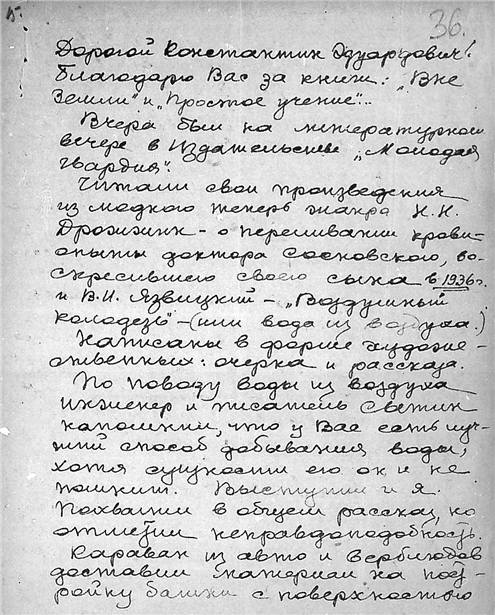 15.
36.
Дорогой Константин Эдуардович!
Благодарю Вас за книги: „Вне
Земли“ и „Простое учение“...
Вчера был на литературном
вечере в издательстве „Молодая
гвардия“.
Читали свои произведения
из модного теперь жанра Н.К.
Дрожжин - о переливании крови-
опыты доктора Сосновского, во-
скресившего своего сына в 1936г.
и В.И. Язвицкий - „Воздушный
колодезь“ - (или вода из воздуха.)
Написаны в форме художе-
ственных: очерка и рассказа.
По поводу воды из воздуха
инженер и писатель Светик
напомнил, что у Вас есть луч-
ший способ добывания воды,
хотя сущности его он и не
помнит. Выступил и я.
Похвалил в общем рассказ, но
отметил неправдоподобность.
Караван из авто и верблюдов
доставил материал на пост-
ройку башни с поверхностью